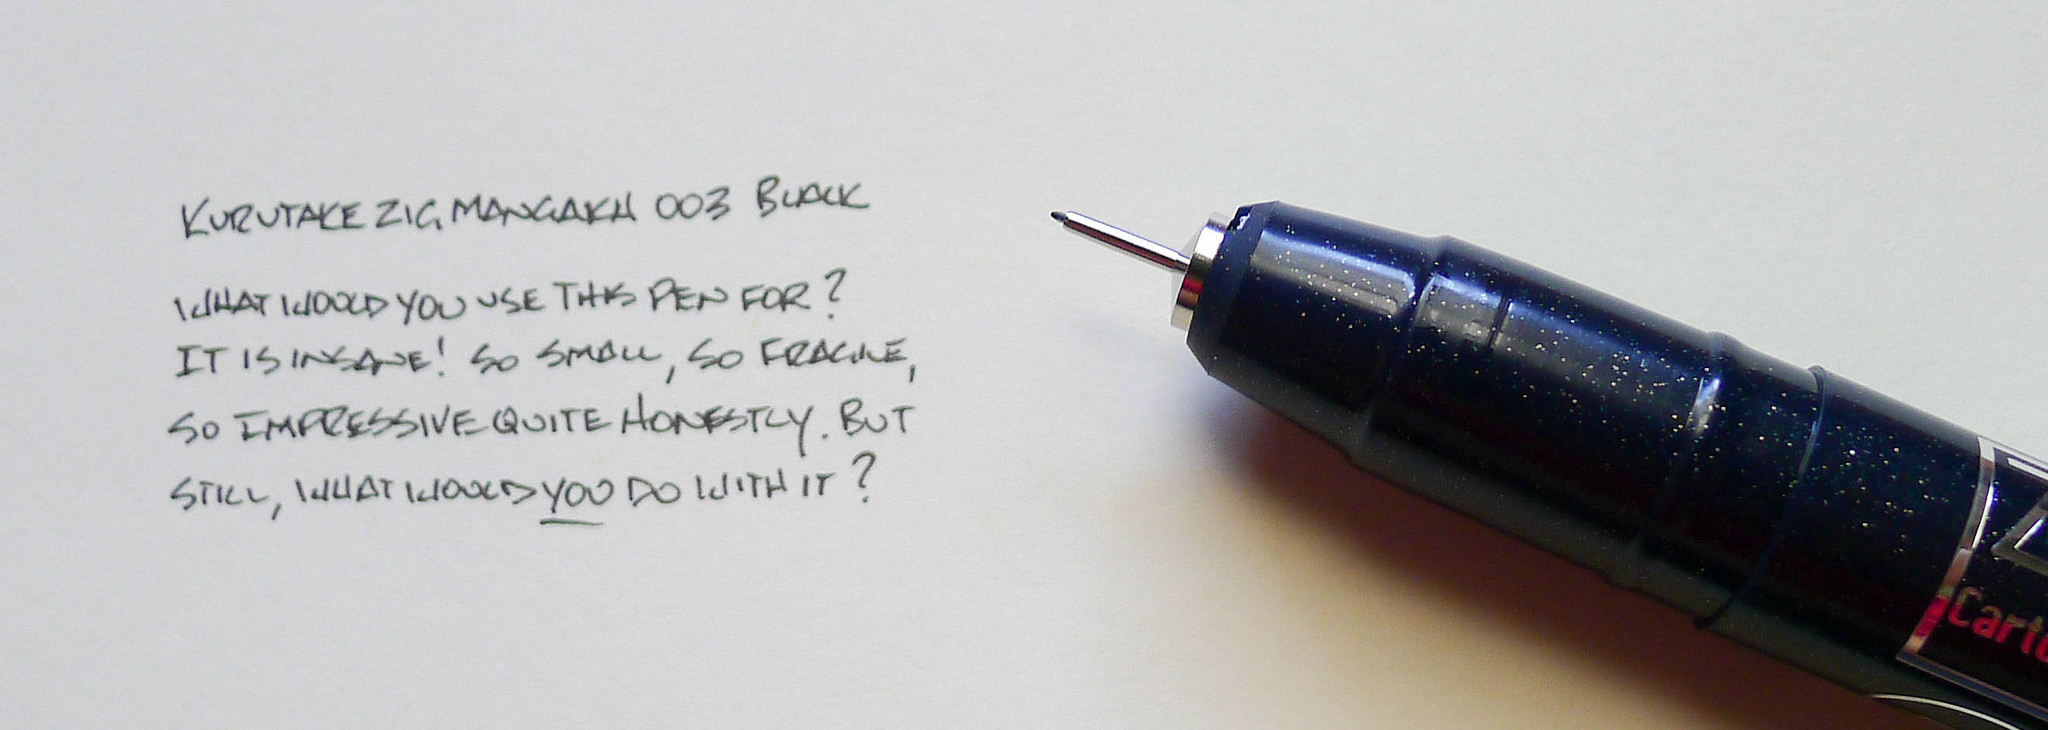 KURUTAKE ZIG MANGAKA 003 BLACK
WHAT WOULD YOU USE THIS PEN FOR?
IT IS INSANE! SO SMALL, SO FRAGILE,
SO IMPRESSIVE QUITE HONESTLY. BUT
STILL, WHAT WOULD YOU DO WITH IT?